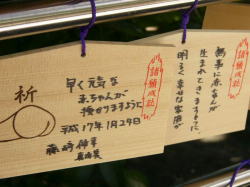 祈
早く元気な
赤ちゃんが
授かりますように
平成17年1月29日
藤崎伸幸
諸願成就
無事に赤ちゃんが
生まれてきますように
明るく幸せな家庭が
諸願成就